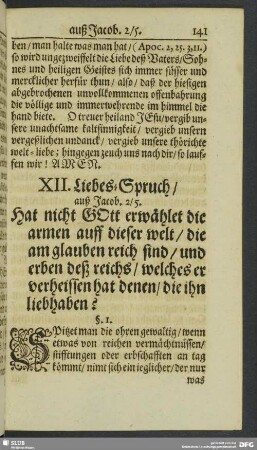 auß Jacob. 2/5. 141
ben/ man halte was man hat/ (Apoc. 2, 25. 3, 11.)
so wird ungezweiffelt die Liebe deß Vaters/ Soh-
nes und heiligen Geistes sich immer süsser und
mercklicher herfür thun/ also/ daß der hiesigen
abgebrochenen unvollkommenen offenbahrung
die völlige und immerwehrende im himmel die
hand biete. O treuer heiland JEsu/ vergib un-
sere unachtsame kaltsinnigkeit/ vergieb unsern
vergeßlichen undanck/ vergieb unsere thörichte
welt-liebe; hingegen zeuch uns nach dir/ so lauf-
fen wir! AMEN.
XII. Liebes-Spruch/
auß Jacob. 2/5.
Hat nicht GOtt erwählet die
armen auff dieser welt/ die
am glauben reich sind/ und
erben deß reichs/ welches er
verheissen hat denen/ die ihn
liebhaben?
§. 1.
SPitzet man die ohren gewaltig/ wenn
etwas von reichen vermächtnissen/
stifftungen oder erbschafften an tag
kömmt/ nimt sich ein ieglicher/ der nur
was
SLUB
DFG